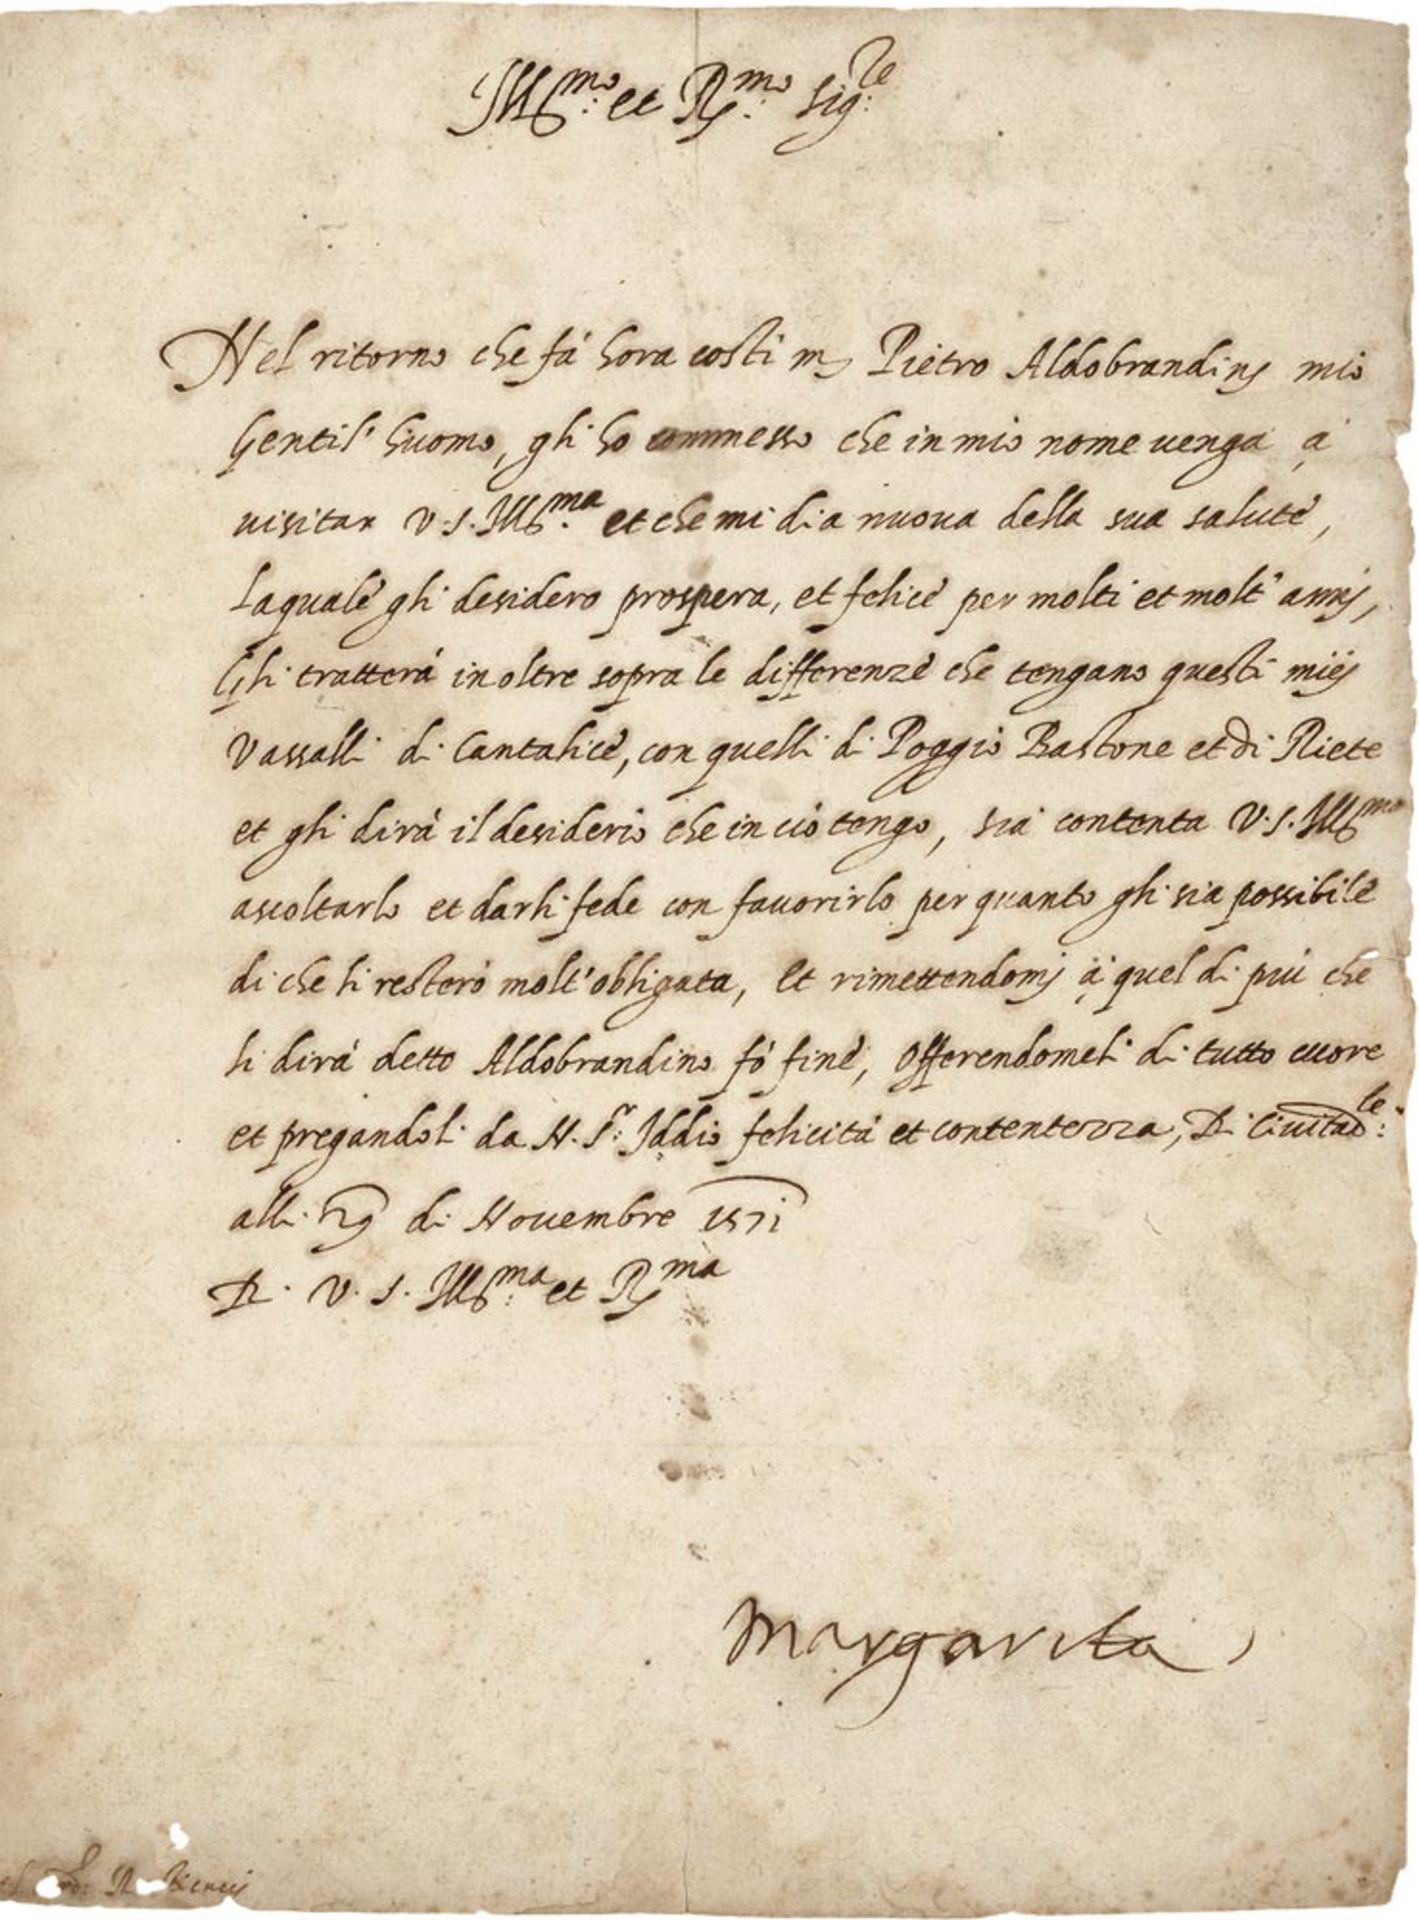 Ill.mo et R.mo Sig.le
Nel ritorno che fà hora costi m Pietro Aldobrandinj mio
Gentil'huomo, gli ho commesso che in mio nome uenga à
uisitar V.S. Ill.ma et che mi dia nuoua della sua salute,
laquale gli desidero prospera, et felice per molti et molt'annj,
Gli tratterà inoltre sopra le differenze che tengano questi miej
Vassalli di Cantalice, con quelli di Poggio Bastone et di Riete
et gli dirà il desiderio che in ciò tengo, sia contenta V.S. Ill.ma
ascoltarlo et darli fede con fauorirlo per quanto gli sia possibile
di che li resterò molt'obligata, Et rimettendomj à quel di più che
li dirà detto Aldobrandino fò fine, Offerendomeli di tutto cuore
et pregandoli da N. S.r Iddio felicità et contentezza, Di Ciuitad.le
alli 29 di Nouembre 1571
D. V. S. Ill.ma et R.ma
Margarita